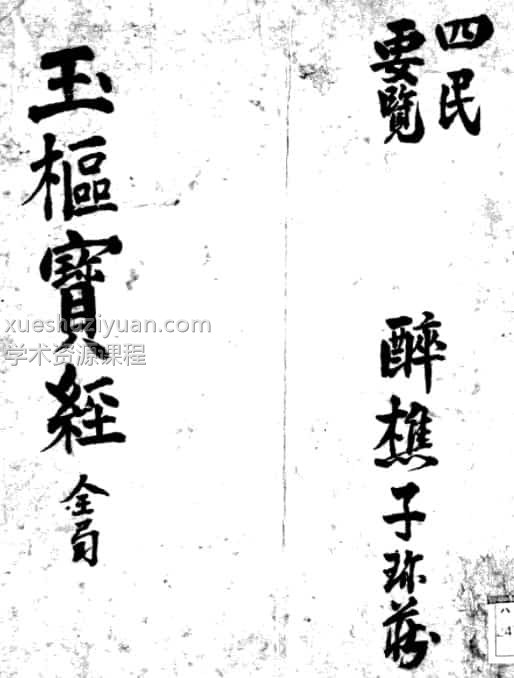 四民
要覽
醉樵子珎藏
玉樞寶經
全局
xueshuziyuan.com
学术资源课程
八
4